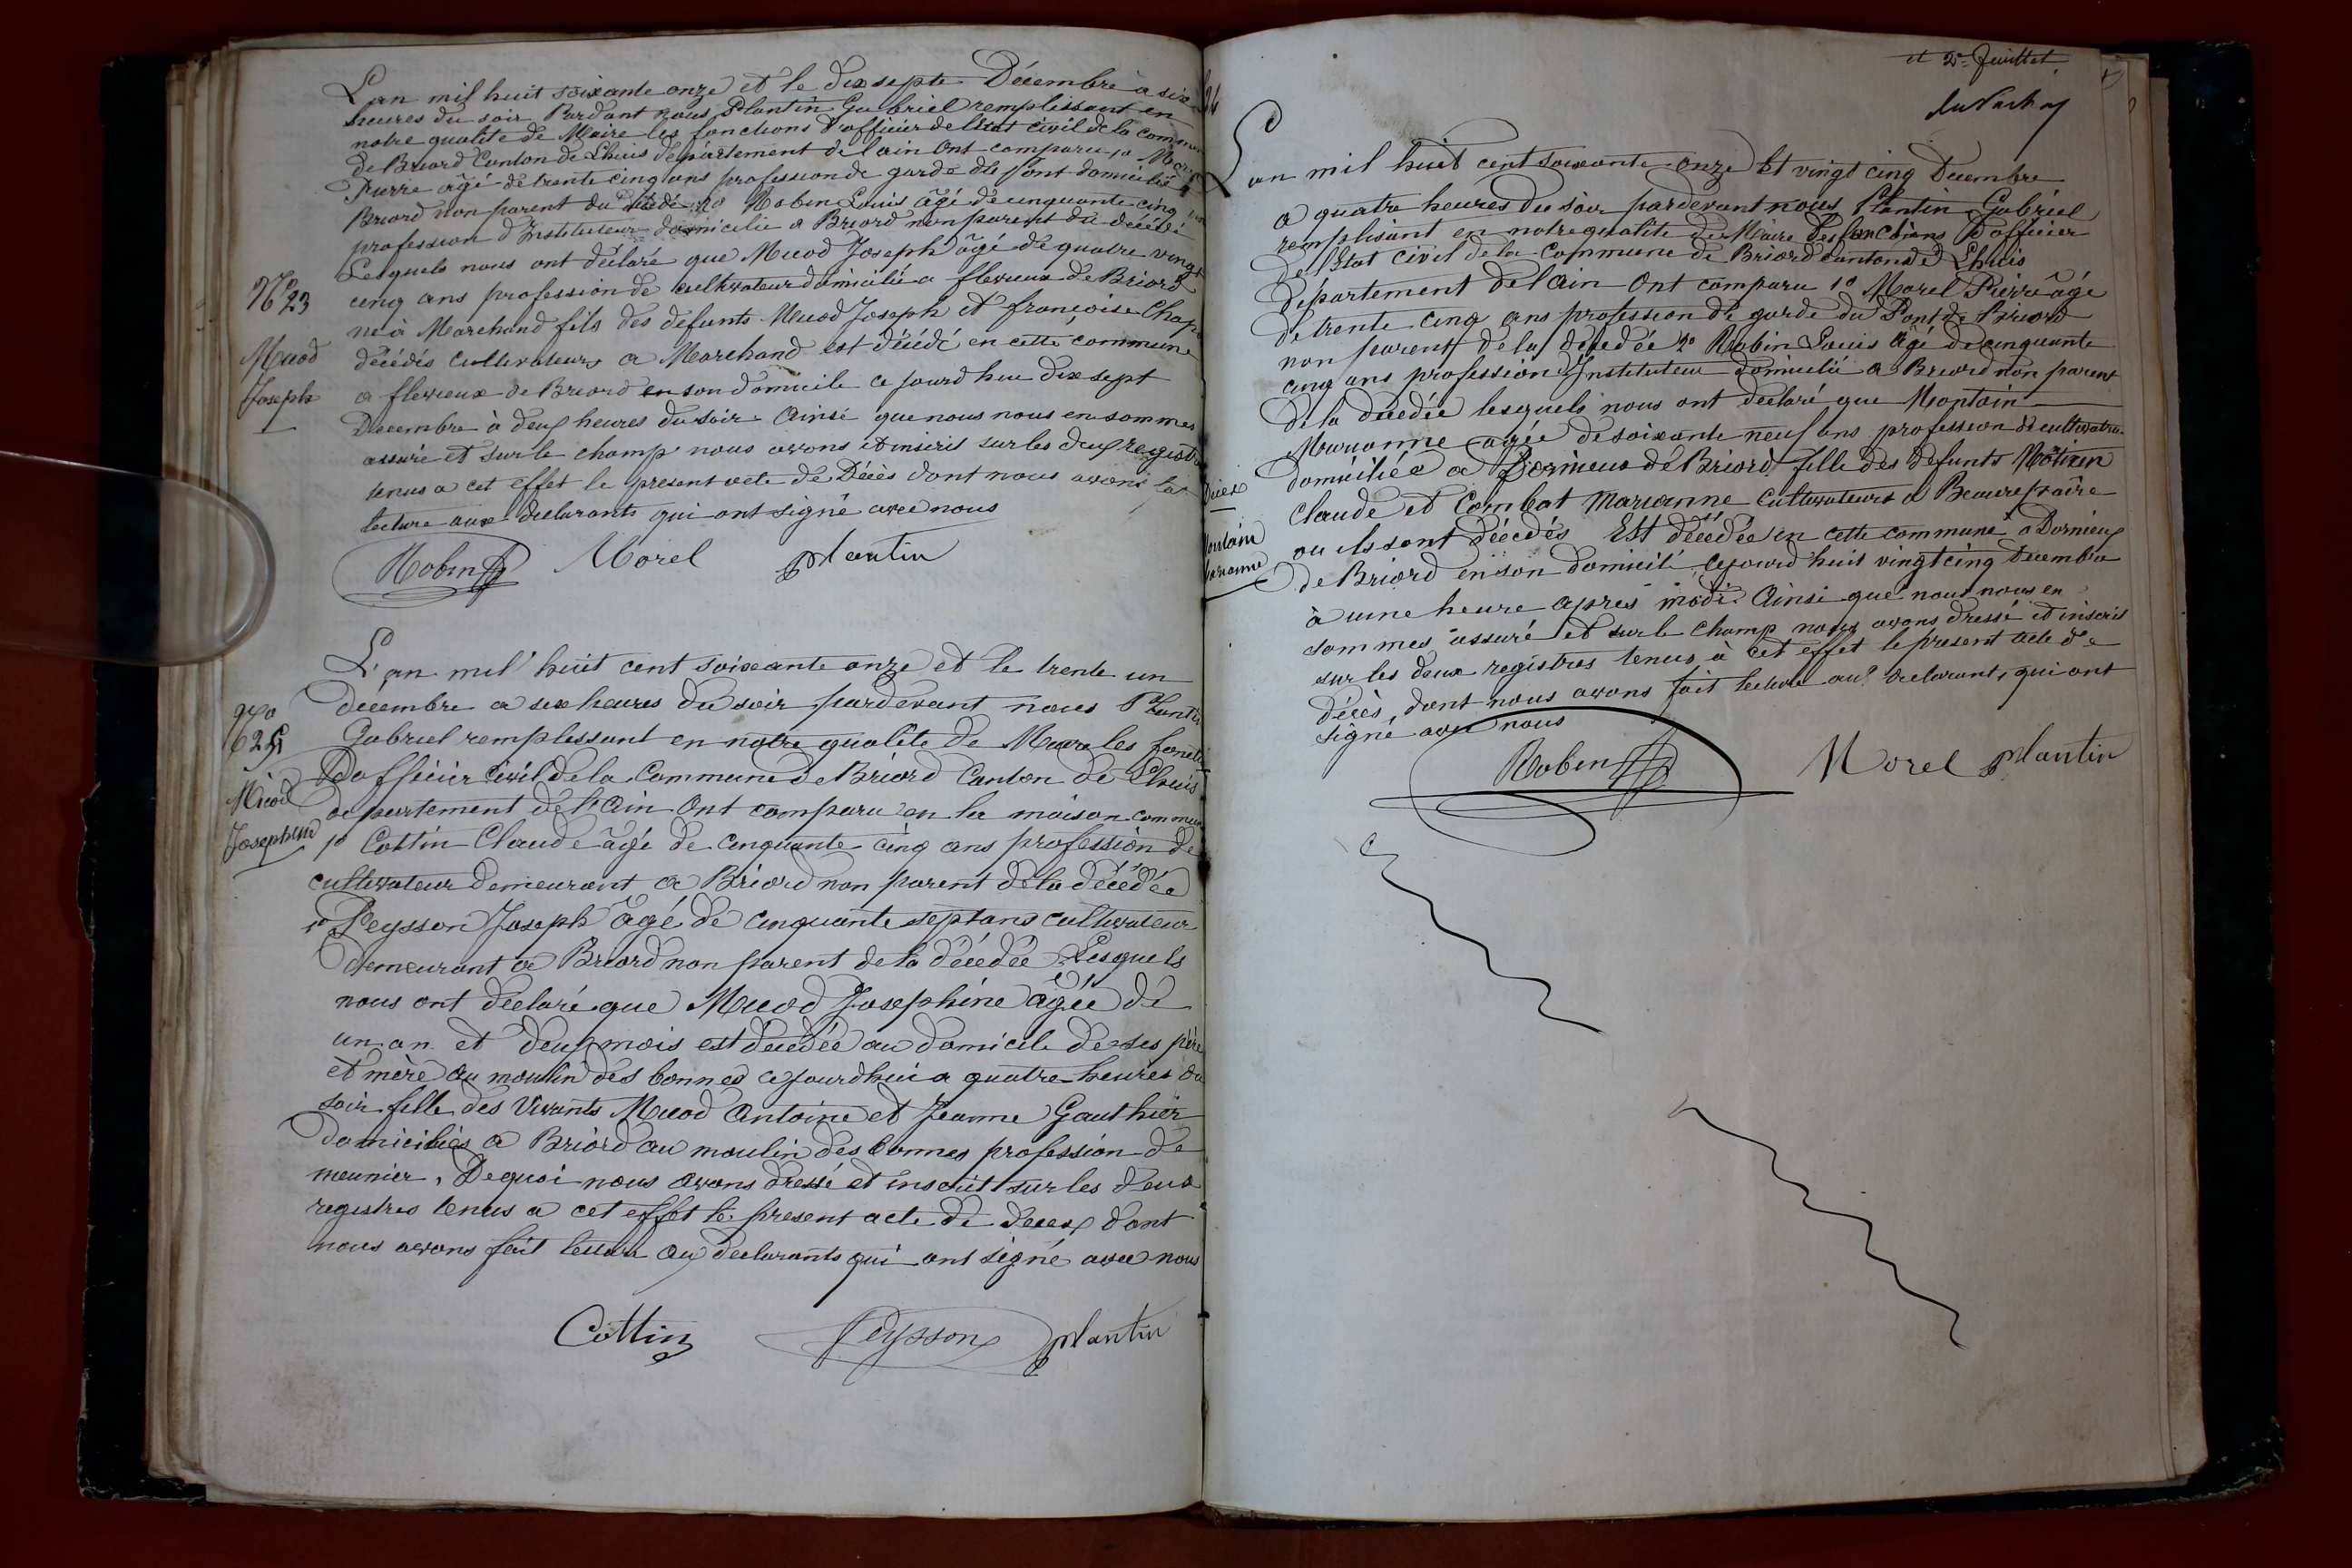 L'an mil huit soixante onze et le dix septe Décembre à six
heures du soir Pardvant nous Plantin Gabriel remplissant en
notre qualité de Maire les fonctions d'officier de l'Etat civil de la commune
de Briord Canton de Lhuis département de l'ain Ont comparu 1º Morel
Pierre âgé de trente cinq ans profession de garde du Pont domicilié à
Briord non parent du décédé 2º Robin Louis âgé de cinquante cinq ans
profession d'Instituteur domicilié a Briord non parent du décédé
Lesquels nous ont déclaré que Micod Joseph âgé de quatre vingt
cinq ans profession de cultivateur domicilié a flevieux de Briord
né à Marchand fils des defunts Micod Joseph et françoise
décédés cultivateurs a Marchand est décédé en cette commune
a flevieux de Briord en son domicile ce jourd hui dix sept
Decembre à deux heures du soir. Ainsi que nous nous en sommes
assuré et sur le champ nous avons et inscris sur les deux registres
tenus a cet effet le present acte de Décès dont nous avons fait
lecture aux declarants qui ont signé avec nous
Robin Morel plantin
Nº 23
Micod
Joseph
L'an mil huit cent soixante onze et le trente un
décembre a six heures du soir pardevant nous Plantin
Gabriel remplissant en notre qualité de Maire les
D'officier civil de la Commune de Briord Canton de Lhuis
département de l'Ain Ont comparu en la maison commune
1º Cottin Claude âgé de cinquante cinq ans profession de
cultivateur demeurant a Briord non parent de la décédée
Peysson Joseph âgé de cinquante sept ans cultivateur
demeurant a Briord non parent de la décédée. Lesquels
nous ont déclaré que Micod Josephine âgée de
un an et deux mois est décédée au domicile de ses père
et mère au moulin des bonnes ce jourdhui a quatre heures du
soir fille des Vivants Micod Antoine et Jeanne Gauthier
domiciliés a Briord au moulin des bonnes profession de
meunier. De quoi nous avons dressé et inscrit sur les deux
registres tenus a cet effet le present acte de deces dont
nous avons fait lecture au declarants qui ont signé avec nous
Cottin Peysson plantin
25
Micod
Josephine
et 2e feuillet
L'an mil huit cent soixante onze et vingt cinq Decembre
a quatre heures du soir pardevant nous Plantin Gabriel
remplisant en notre qualité de Maire les fonctions d'officier
de l'Etat civil de la Commune de Briord canton de Lhuis
département de l'Ain Ont comparu 1º Morel Pierre âgé
de trente cinq ans profession de garde du Pont de Briord
non parent de la décédée 2º Robin Louis âgé de cinquante
cinq ans profession d'Instituteur domicilié a Briord non parent
de la décédée lesquels nous ont declaré que Montain
Marianne agée de soixante neuf ans profession de cultivatrice
domiciliée a Dornieux de Briord fille des defunts
Claude et Combat Marianne Cultivateurs a Beaurepaire
ou ils sont décédés Est décédée en cette commune a Dornieux
de Briord en son domicile cejourd'huit vingt cinq Decembre
à une heure apres midi. Ainsi que nous nous en
sommes assuré et sur le champ nous avons dressé et inscris
sur les deux registres tenus à cet effet le présent acte de
décès, dont nous avons fait lecture aux declarants, qui ont
signé avec nous
Robin Morel plantin
Montain
Marianne